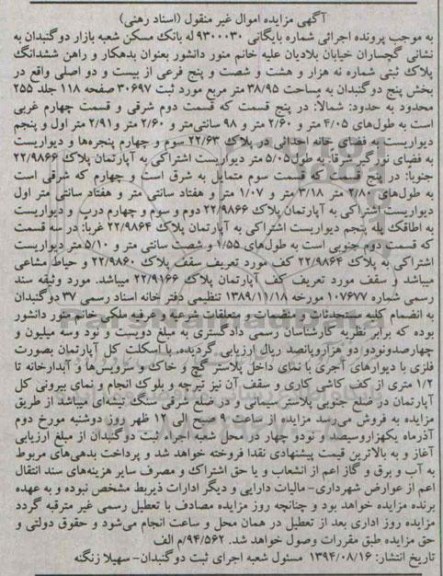 آگهی مزایده اموال غیر منقول (اسناد رهنی)
به موجب پرونده اجرائی شماره بایگانی ۹۳۰۰۰۳۰ له بانک مسکن شعبه بازار دوگنبدان به
نشانی گچساران خیابان بلادیان علیه خانم منور دانشور بعنوان بدهکار و راهن ششدانگ
پلاک ثبتی شماره نه هزار و هشت و شصت و پنج فرعی از بیست و دو اصلی واقع در
بخش پنج دوگنبدان به مساحت ۳۸/۹۵ متر مربع مورد ثبت ۳۰۶۹۷ صفحه ۱۱۸ جلد ۲۵۵
محدود به حدود: شمالاً: در پنج قسمت که قسمت دوم شرقی و قسمت چهارم غربی
است به طول‌های ۴/۰۵ متر و ۲/۶۰ متر و ۹۸ سانتی‌متر و ۲/۶۰ متر و ۲/۹۱ متر اول و پنجم
دیواریست به فضای خانه احداثی در پلاک ۲۲/۶۳ سوم و چهارم پنجره‌ها و دیواریست
به فضای نورگیر شرقاً: بطول ۵/۰۵ متر دیواریست اشتراکی به آپارتمان پلاک ۲۲/۹۸۶۶
جنوباً: در پنج قسمت که قسمت سوم متمایل به شرق است و چهارم که شرقی است
به طول‌های ۲/۸۰ متر ۳/۱۸ متر و ۱/۰۷ متر و هفتاد سانتی متر و هفتاد سانتی متر اول
دیواریست اشتراکی به آپارتمان پلاک ۲۲/۹۸۶۶ دوم و سوم و چهارم درب و دیواریست
به اطاقک پله پنجم دیواریست اشتراکی به آپارتمان پلاک ۲۲/۹۸۶۴ غرباً: در سه قسمت
که قسمت دوم جنوبی است به طول‌های ۱/۵۵ و شصت سانتی متر و ۵/۱۰ متر دیواریست
اشتراکی به پلاک ۲۲/۹۸۶۴ کف مورد تعریف سقف پلاک ۲۲/۹۸۶۰ و حیاط مشاعی
میباشد و سقف مورد تعریف کف آپارتمان پلاک ۲۲/۹۱۶۶ میباشد. مورد وثیقه سند
رسمی شماره ۱۰۷۶۷۷ مورخه ۱۳۸۹/۱۱/۱۸ تنظیمی دفتر خانه اسناد رسمی ۳۷ دوگنبدان
به انضمام کلیه مستحدثات و منضمات و متعلقات شرعیه و عرفیه ملکی خانم منور دانشور
بوده که برابر نظریه کارشناسان رسمی دادگستری به مبلغ دویست و نود وسه میلیون و
چهارصدونودو دو هزاروپانصد ریال ارزیابی گردیده. با اسکلت کل آپارتمان بصورت
فلزی با دیوارهای آجری با نمای داخل پلاستر گچ و خاک و سرویس‌ها و آبدارخانه تا
۱/۲ متری از کف کاشی کاری و سقف آن نیز تیرچه و بلوک انجام و نمای بیرونی کل
آپارتمان در ضلع جنوبی پلاستر سیمانی و در ضلع شرقی سنگ نیشه‌ای میباشد از طریق
مزایده به فروش می‌رسد مزایده از ساعت ۹ صبح الی ۱۲ ظهر روز دوشنبه مورخ دوم
آذرماه یکهزاروسیصد و نودو چهار در محل شعبه اجراء ثبت دوگنبدان از مبلغ ارزیابی
آغاز و به بالاترین قیمت پیشنهادی نقدا فروخته خواهد شد و پرداخت بدهی‌های مربوط
به آب و برق و گاز اعم از انشعاب و یا حق اشتراک و مصرف سایر هزینه‌های سند انتقال
اعم از عوارض شهرداری- مالیات دارایی و دیگر ادارات ذیربط مشخص نبوده و به عهده
برنده مزایده خواهد بود و چنانچه روز مزایده مصادف با تعطیل رسمی غیر مترقبه گردد
مزایده روز اداری بعد از تعطیل در همان محل و ساعت انجام می‌شود و حقوق دولتی و
حق مزایده طبق مقررات وصول خواهد شد. ۹۴/۵۶۲/م الف
تاریخ انتشار: ۱۳۹۴/۰۸/۱۶ مسئول شعبه اجرای ثبت دوگنبدان- سهیلا زنگنه